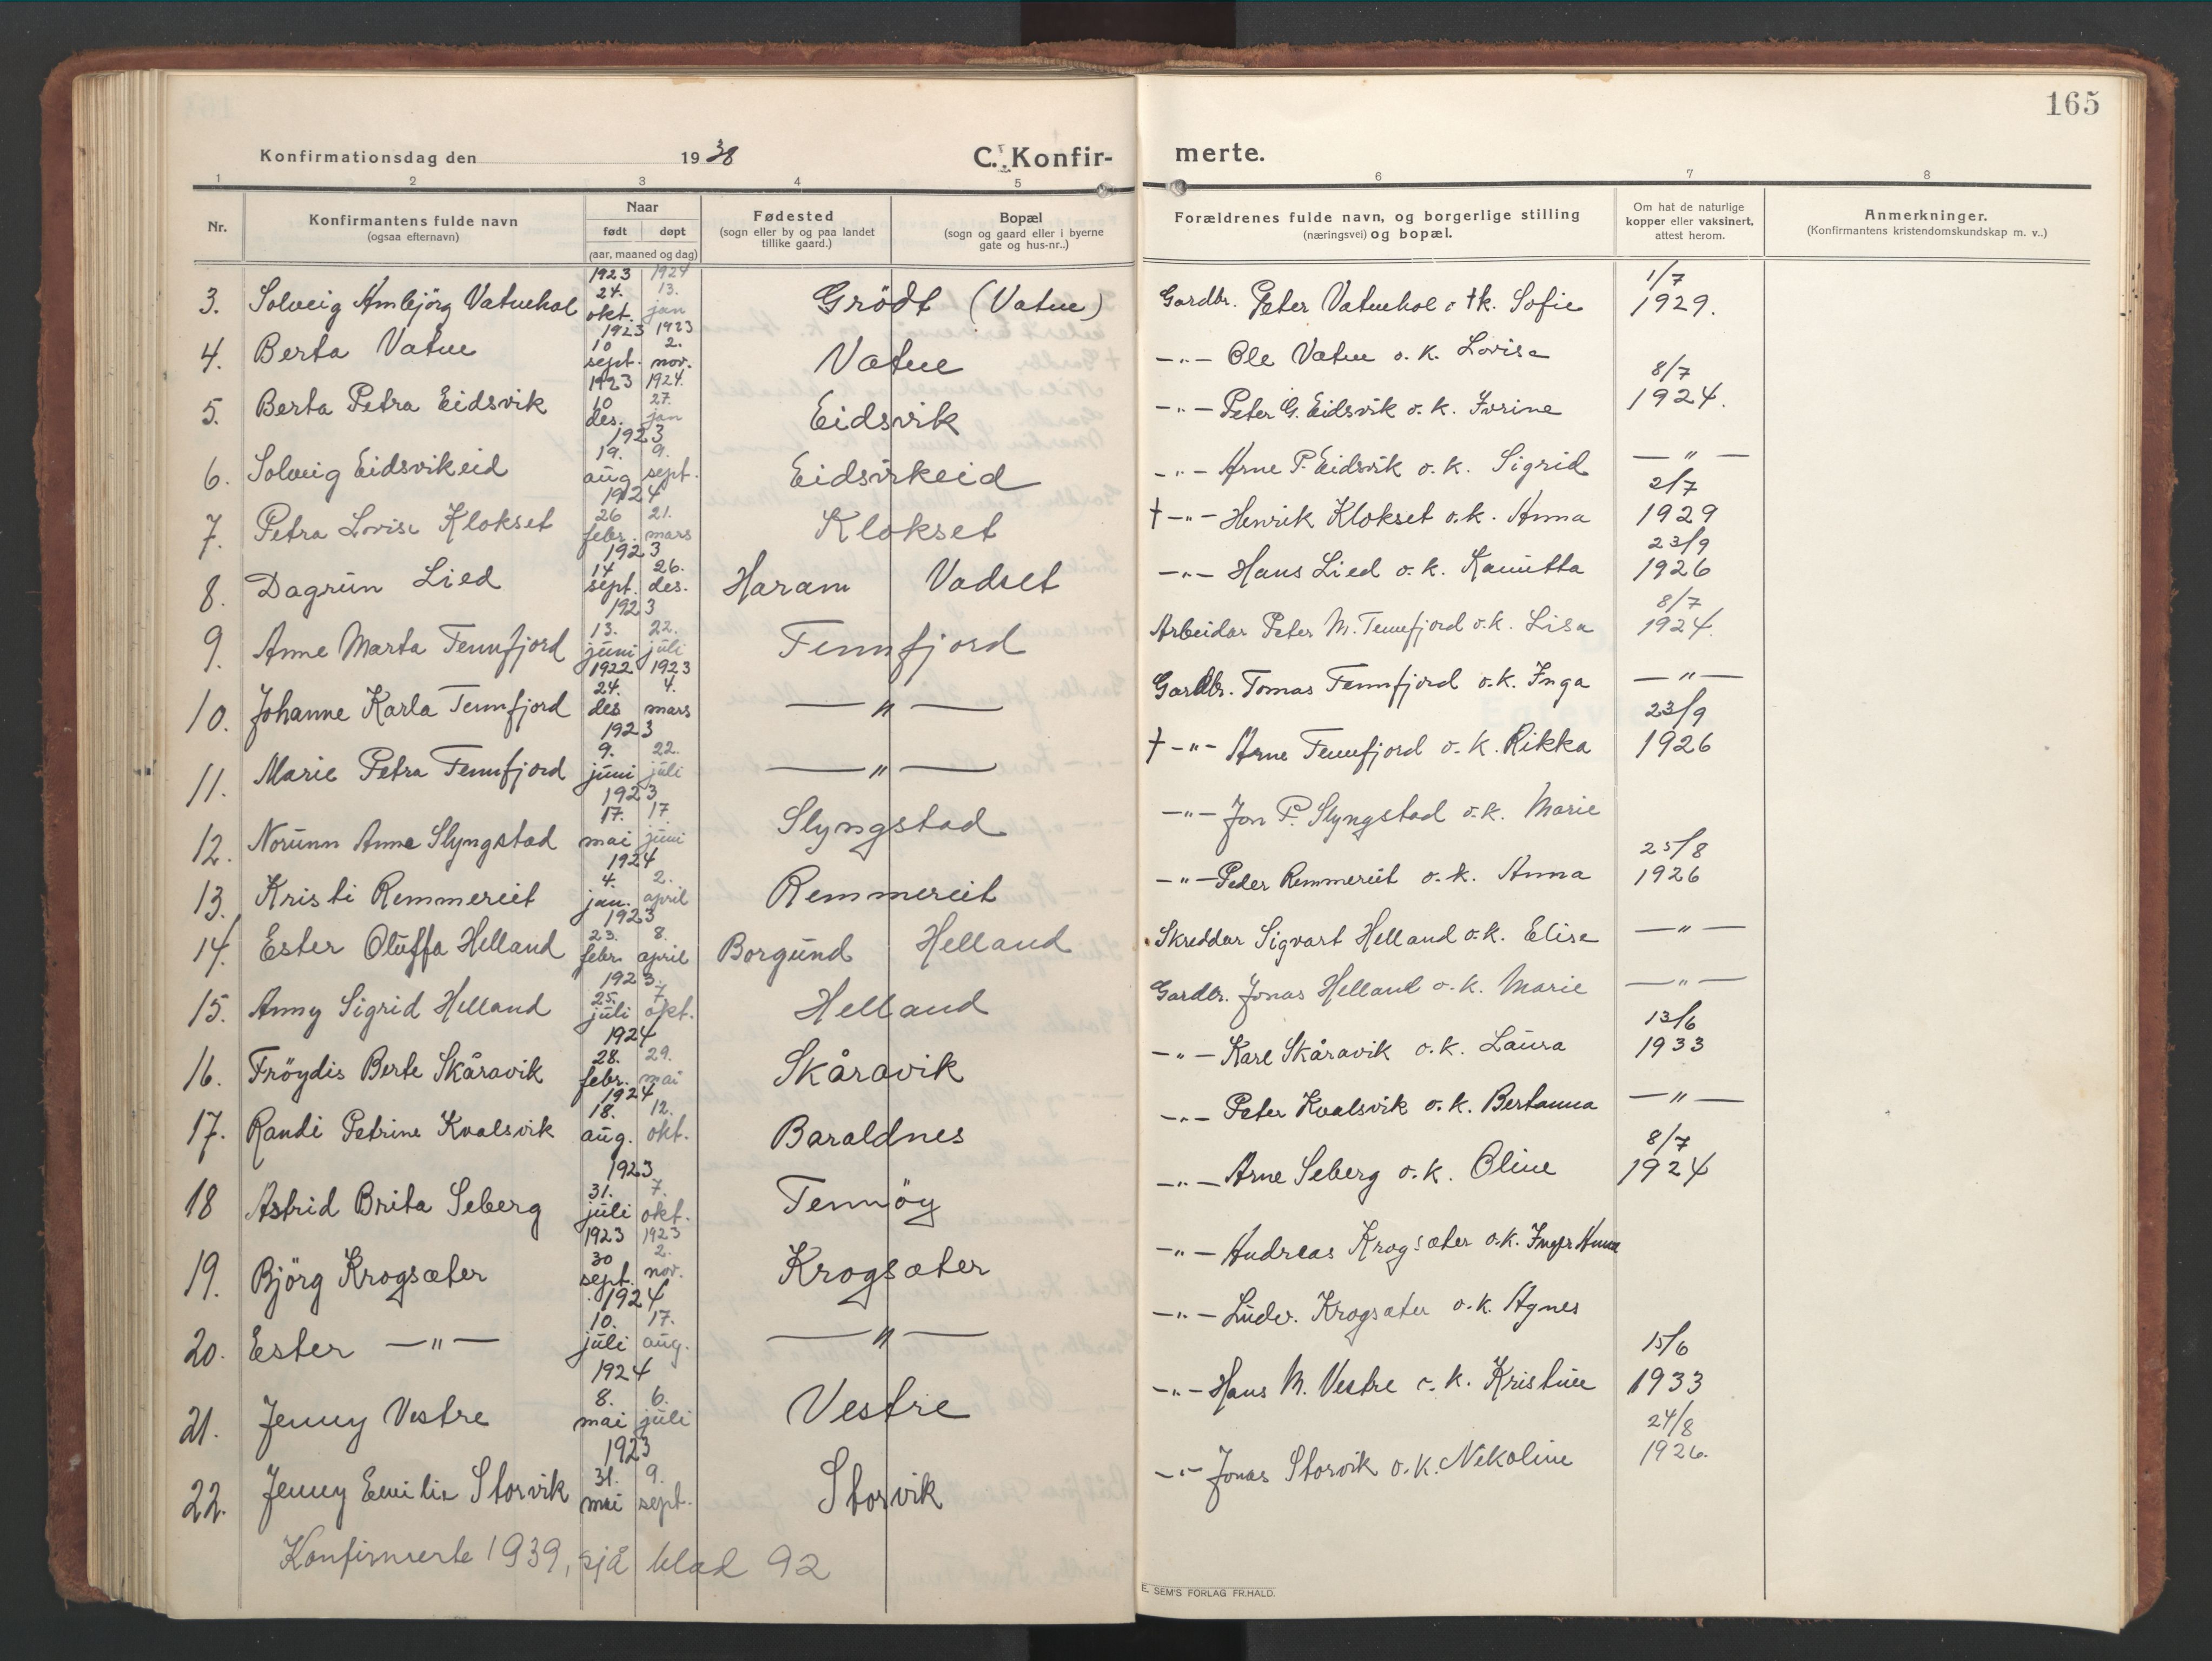 165
Konfirmationsdag den 1938 C. Konfirmerte.
1 2 3 4 5 6 7 8
Nr. Konfirmantens fulde navn (ogsaa efternavn) Naar født døpt (aar, maaned og dag) Fødested (sogn eller by og paa landet tillike gaard.) Bopæl (sogn og gaard eller i byerne gate og hus-nr..) Forældrenes fulde navn, og borgerlige stilling (næringsvei) og bopæl. Om hat de naturlige kopper eller vaksinert, attest herom. Anmerkninger. (Konfirmantens kristendomskundskap m. v..)
3. Solveig Ambjörg Vatnehol 1923 24. okt. 1924 13. jan Grödt (Vatne) Gardbr. Peter Vatnehol o † k. Sofie 1/7 1929.
4. Berta Vatne 1923 10 sept. 1923 2. nov. Vatne -"- Ole Vatne o. k. Lovise
5. Berta Petra Eidsvik 1923 10 des. 1924. 27. jan Eidsvik -"- Peter G. Eidsvik o. k. Jorine 8/7 1924.
6. Solveig Eidsvikeid 1923 19. aug 9. sept. Eidsvikeid -"- Arne P. Eidsvik o. k. Sigrid -"-
7. Petra Lovise Klokset 1924 26 febr. 21. mars Klokset † -"- Henrik Klokset o. k. Anna 2/7 1929
8. Dagrun Lied 1923 14 sept. 26. des. Haram Vadset -"- Hans Lied o. k. 23/9 1926
9. Anne Marta Tennfjord 1923 13. juni 22. juli Tennfjord Arbeidar Peter M. Tennfjord o. k. Lisa 8/7 1924.
10. Johanne Karla Tennfjord 1922 24. des 1923 4. mars -"- Gardbr. Tomas Tennfjord o. k. Inga -"-
11. Marie Petra Tennfjord 1923 9. juni 22. juli -"- † -"- Arne Tennfjord o. k. Rikka 23/9 1926
12. Norunn Anne Slyngstad 1923 17. mai 17 juni Slyngstad -"- Jon P. Slyngstad o. k. Marie
13. Kristi Remmereit 1924 4. jan. 2. april Remmereit -"- Peder Remmereit o. k. Anna 25/8 1926
14. Ester Oluffa Helland 1923 23. febr. 8. april Borgund Helland Skreddar Sigvart Helland o. k. Elise -"-
15. Anny Sigrid Helland 1923. 25. juli 7 okt. Helland Gardbr. Jonas Helland o. k. Marie -"-
16. Fröydis Berte Skåravik 1924 28. febr. 29. mai Skåravik -"- Kare Skåravik o. k. Laura 13/6 1933
17. Randi Petrine Kvalsvik 1924 18. aug. 12. okt. Baraldnes -"- Peter Kvalsvik o. k. Bertanna -"-
18 Astrid Brita Seberg 1923 31. juli 7. okt. Tennöy -"- Arne Seberg o. k. Oline 8/7 1924
19. Björg Krogsæter 1923 30 sept. 1923 2. nov. Krogsæter -"- Andreas Krogsæter o. k.
20. Ester -"- 1924 10. juli 17. aug. -"- -"- Ludv. Krogsæter o. k. Agnes
21. Jenny Vestre 1924 8. mai 6. juli Vestre -"- Hans M. Vestre o. k. Kristine 15/6 1933
22. Jenny Emilie Storvik 1923 31. mai 9. sept. Storvik -"- Jonas Storvik o. k. Nikoline 24/8 1926.
Konfirmerte 1939, sjå blad 92
E. SEM'S FORLAG FR.HALD.